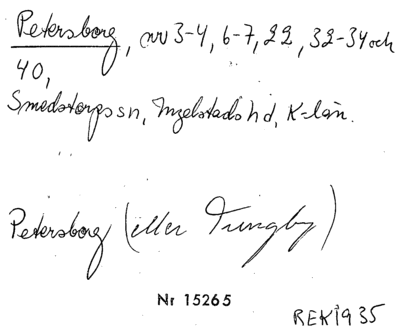 Petersborg, nr 3-4, 6-7, 22, 32-34 och
40,
Smedstorps sn, Ingelstads hd, K-län.
Petersborg (eller Tungby)
Nr 15265
REK 1935